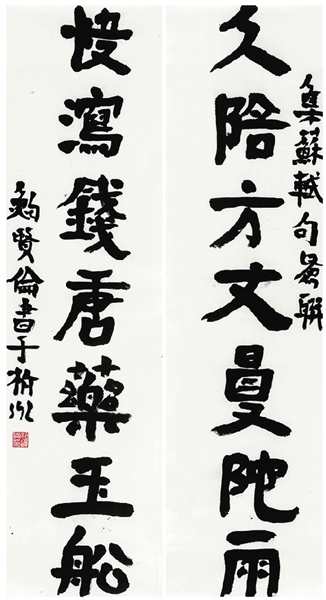 集蘇軾句爲聯
久陪方丈曼陀雨
快瀉錢唐藥玉船
鮑賢倫書于杭州